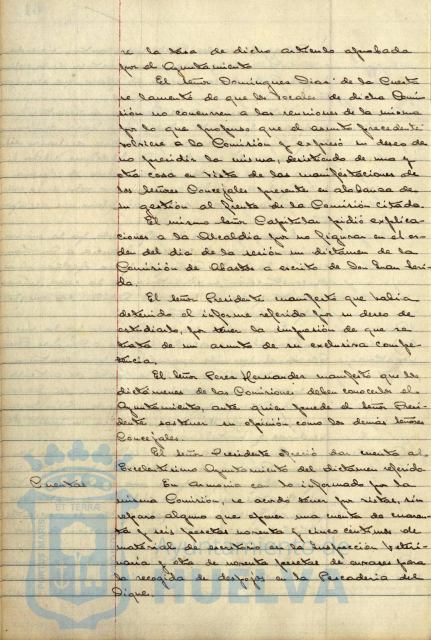 se la tasa de dicho artículo aprobada
por el Ayuntamiento
El Señor Domínguez Díaz de la Cuesta
se lamentó de que los vocales de dicha Comi-
sión no concurren a las reuniones de la misma
por lo que propuso que el asunto precedente
volviese a la Comisión y expresó su deseo de
no presidir la misma, desistiendo de una y
otra cosa en vista de las manifestaciones de
los Señores Concejales presente en alabanza de
su gestión al frente de la Comisión citada.
El mismo Señor Capitular pidió explica-
ciones a la Alcaldía por no figurar en el or-
den del día de la sesión un dictamen de la
Comisión de Abastos a escrito de Don Juan
da.
El Señor Presidente manifestó que había
detenido el informe referido por su deseo de
estudiarlo, por tener la impresión de que se
trata de un asunto de su exclusiva compe-
tencia.
El Señor Perez Hernandez manifestó que los
dictámenes de las Comisiones deben conocerlos el
Ayuntamiento, ante quien puede el Señor Presi-
dente sostener su opinión como los demas Señores
Concejales.
El Señor Presidente ofreció dar cuenta al
Excelentísimo Ayuntamiento del dictamen referido
Cuentas En armonía con lo informado por la
misma Comisión, se acordó tener por vistas, sin
reparo alguno que oponer una cuenta de cuaren-
ta y seis pesetas noventa y cinco céntimos de
material de escritorio en la Inspección Veteri-
naria y otra de noventa pesetas de envases para
la recogida de despojos en la Pescadería del
Dique.
ET TERRA
Ayuntamiento de
HUELVA